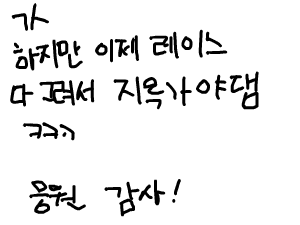 가
하지만 이제 레이스
다 그려서 지옥가야댐
ㅋㅋㅋ
응원 감사!